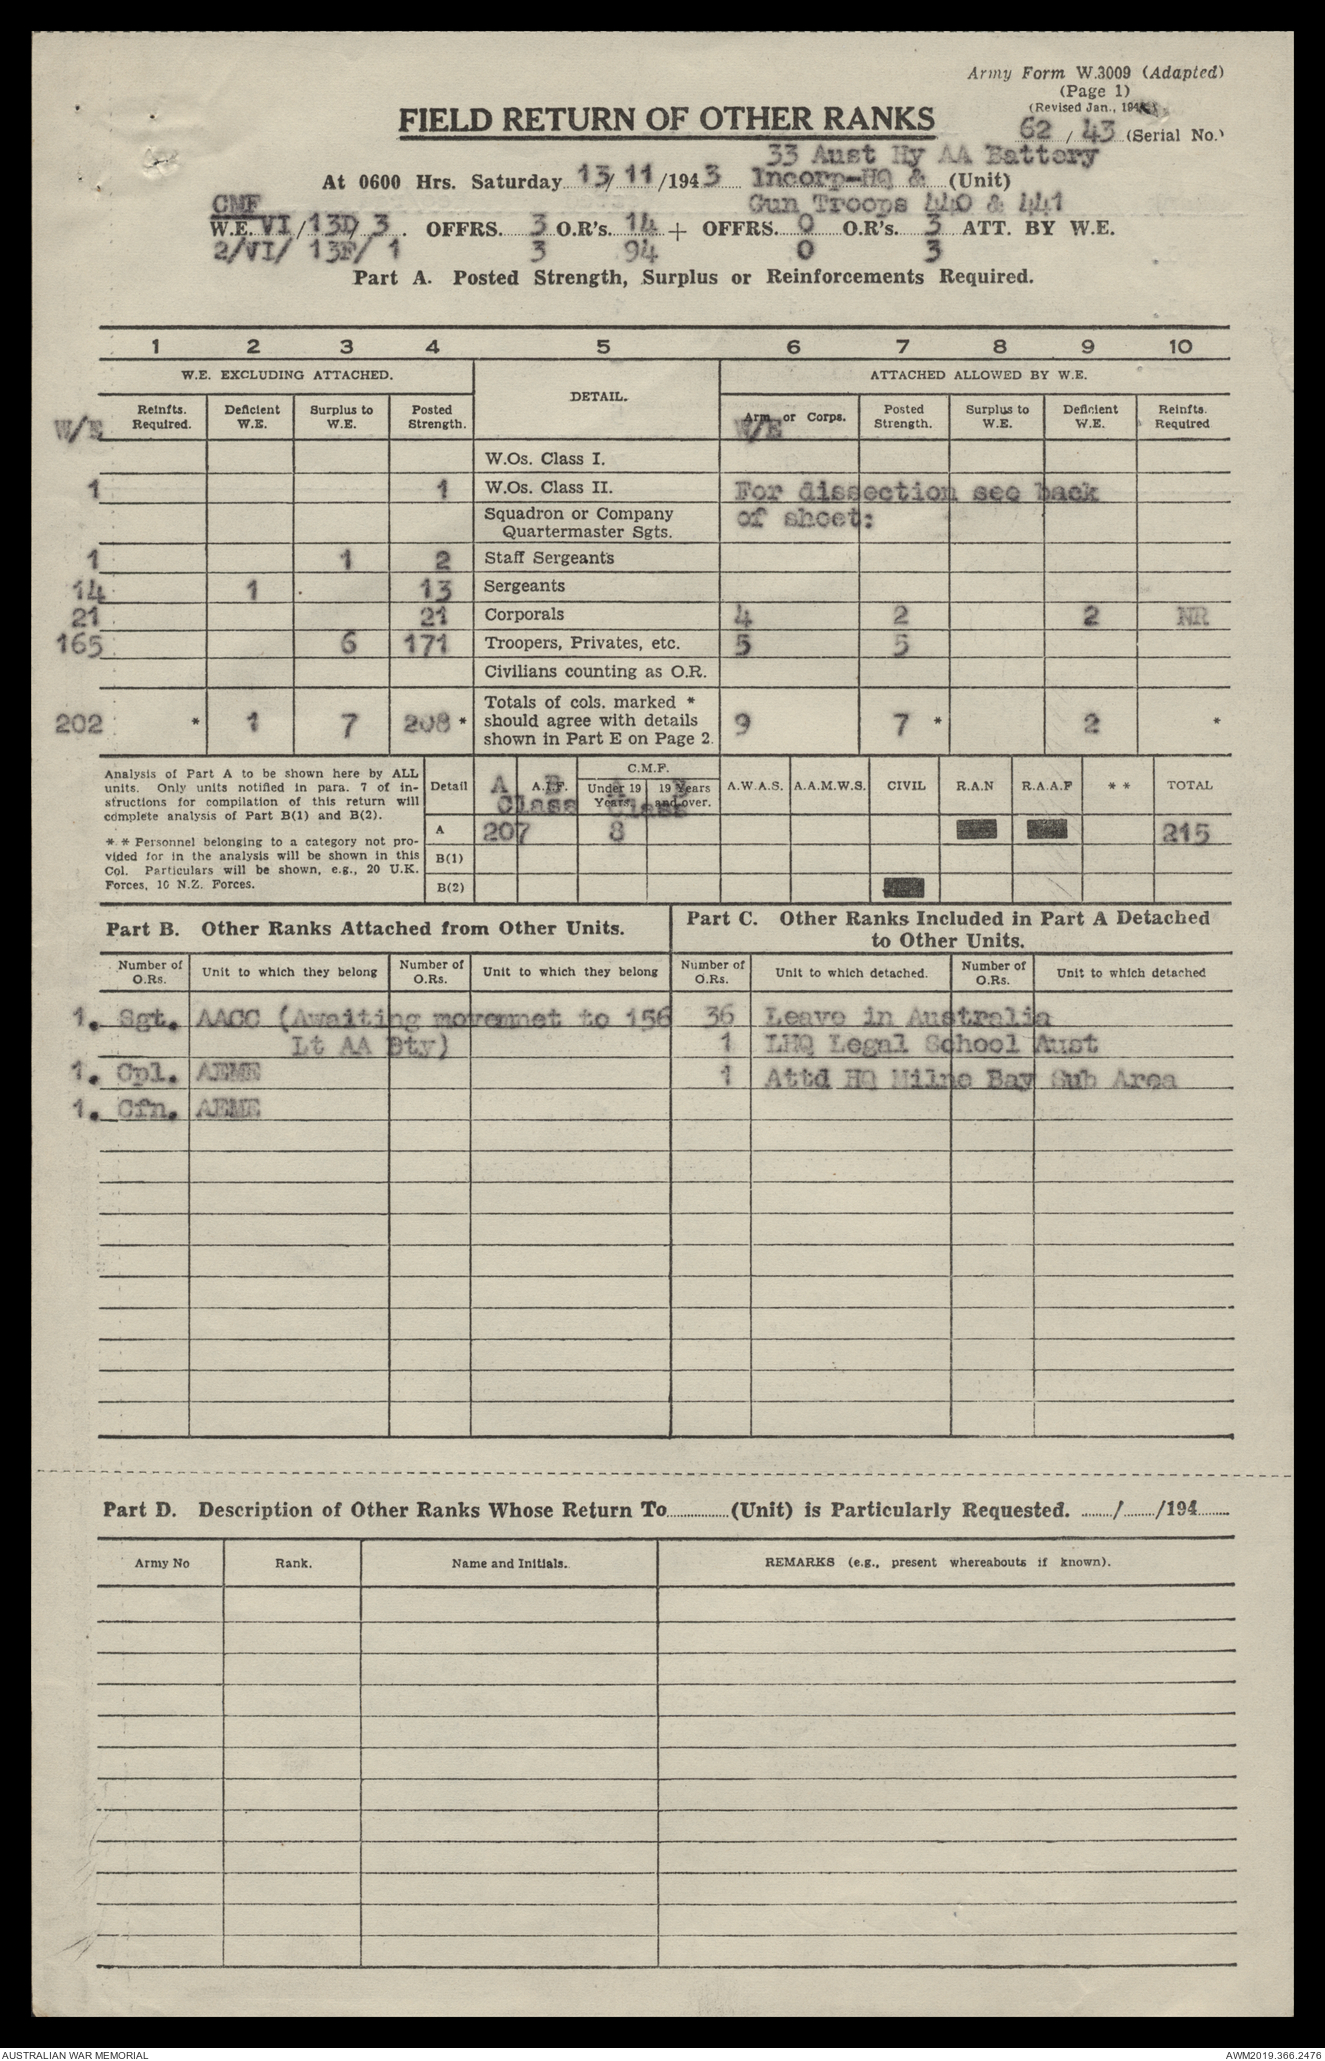 Army Form W.3009 (Adapted)
(Page 1)
(Revised Jan., 194
FIELD RETURN OF OTHER RANKS
62 / 43 (Serial No.)
33 Aust Hy AA Battery
At 0600 Hrs. Saturday 13/11/1943 Incorp-HQ & (Unit)
CMF Gun Troops 440 & 441
W.E. VI/13D/3. OFFRS. 3 O.R's. 14 + OFFRS. 0 O.R's. 3 ATT. BY W.E.
2/VI/ 13F/ 1 3 94 0 3
Part A. Posted Strength, Surplus or Reinforcements Required.
1 2 3 4 5 6 7 8 9 10
W.E. EXCLUDING ATTACHED. DETAIL. ATTACHED ALLOWED BY W.E.
W/E Reinfts. Required. Deficient W.E. Surplus to W.E. Posted Strength. Arm or Corps. W/E Posted Strength. Surplus to W.E. Deficient W.E. Reinfts. Required
W.Os. Class I.
1 1 W.Os. Class II. For dissection see back
Squadron or Company Quartermaster Sgts. of sheet:
1 1 2 Staff Sergeants
14 1 13 Sergeants
21 21 Corporals 4 2 2 NR
165 6 171 Troopers, Privates, etc. 5 5
Civilians counting as O.R.
202 * 1 7 208 * Totals of cols. marked * should agree with details shown in Part E on Page 2. 9 7 * 2 *
Analysis of Part A to be shown here by ALL
units. Only units notified in para. 7 of in-
structions for compilation of this return will
complete analysis of Part B(1) and B(2).
* * Personnel belonging to a category not pro-
vided for in the analysis will be shown in this
Col. Particulars will be shown, e.g., 20 U.K.
Forces, 10 N.Z. Forces.
C.M.F.
Detail A A.I.F. B Under 19 Years. 19 Years and over. A.W.A.S. A.A.M.W.S. CIVIL R.A.N R.A.A.F * * TOTAL
Class Class
A 207 8 215
B(1)
B(2)
Part B. Other Ranks Attached from Other Units.
Part C. Other Ranks Included in Part A Detached
to Other Units.
Number of O.Rs. Unit to which they belong Number of O.Rs. Unit to which they belong Number of O.Rs. Unit to which detached. Number of O.Rs. Unit to which detached
1. Sgt. AACC (Awaiting movemnet to 156 36 Leave in Australia
Lt AA Bty) 1 LHQ Legal School Aust
1. Cpl. AEME 1 Attd HQ Milne Bay Sub Area
1. Cfn. AEME
Part D. Description of Other Ranks Whose Return To (Unit) is Particularly Requested. / /194
Army No Rank. Name and Initials. REMARKS (e.g., present whereabouts if known).
AUSTRALIAN WAR MEMORIAL AWM2019.366.2476